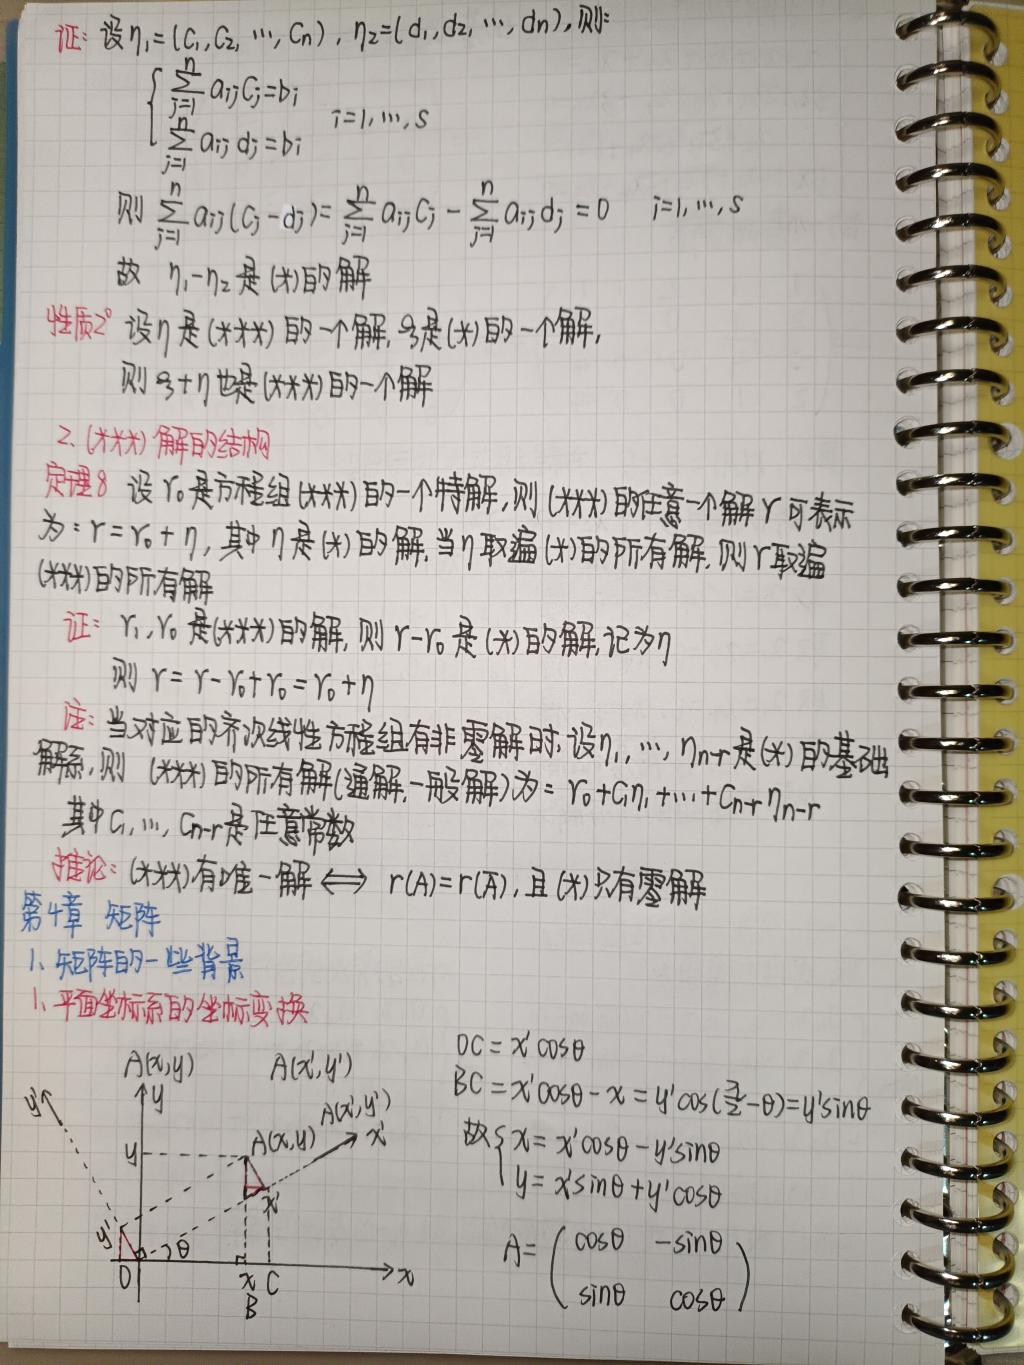 证: 设η₁=(c₁,c₂,…,cn), η₂=(d₁,d₂,…,dn),则:
{ Σⁿⱼ₌₁ aᵢⱼcⱼ=bᵢ
Σⁿⱼ₌₁ aᵢⱼdⱼ=bᵢ i=1,…,s
则 Σⁿⱼ₌₁ aᵢⱼ(cⱼ-dⱼ)= Σⁿⱼ₌₁ aᵢⱼcⱼ - Σⁿⱼ₌₁ aᵢⱼdⱼ=0 i=1,…,s
故 η₁-η₂是(*)的解
性质2° 设η是(***)的一个解,ξ是(*)的一个解,
则ξ+η也是(***)的一个解
2、(***)解的结构
定理8 设r₀是方程组(***)的一个特解,则(***)的任意一个解r可表示
为: r=r₀+η,其中η是(*)的解,当η取遍(*)的所有解,则r取遍
(***)的所有解
证: r₁,r₀是(***)的解,则r-r₀是(*)的解,记为η
则 r=r-r₀+r₀=r₀+η
注: 当对应的齐次线性方程组有非零解时,设η₁,…,ηn-r是(*)的基础
解系,则 (***)的所有解(通解,一般解)为= r₀+c₁η₁+…+cn-rηn-r
其中c₁,…,cn-r是任意常数
推论: (***)有唯一解⟺ r(A)=r(Ā),且(*)只有零解
第4章 矩阵
1、矩阵的一些背景
1、平面坐标系的坐标变换
A(x,y) A(x′,y′)
OC=x′cosθ
BC=x′cosθ-x=y′cos(π/2-θ)=y′sinθ
故{ x=x′cosθ-y′sinθ
y=x′sinθ+y′cosθ
A= ( cosθ -sinθ
sinθ cosθ )
y′ y
A(x′,y′)
y A(x,y) x′
x′
y′ θ
O x C x
B